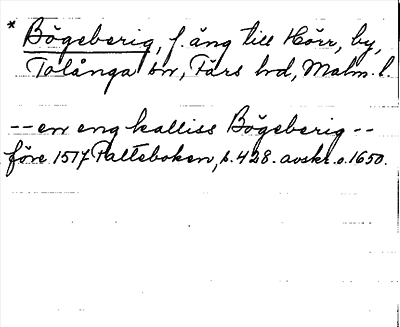 * Bögeberig, f. äng till Hörr, by,
Tolånga sn, Färs hd, Malm. l.
-- en eng kalliss Bögeberig --
före 1517 Palteboken, s. 428. avskr. o. 1650.